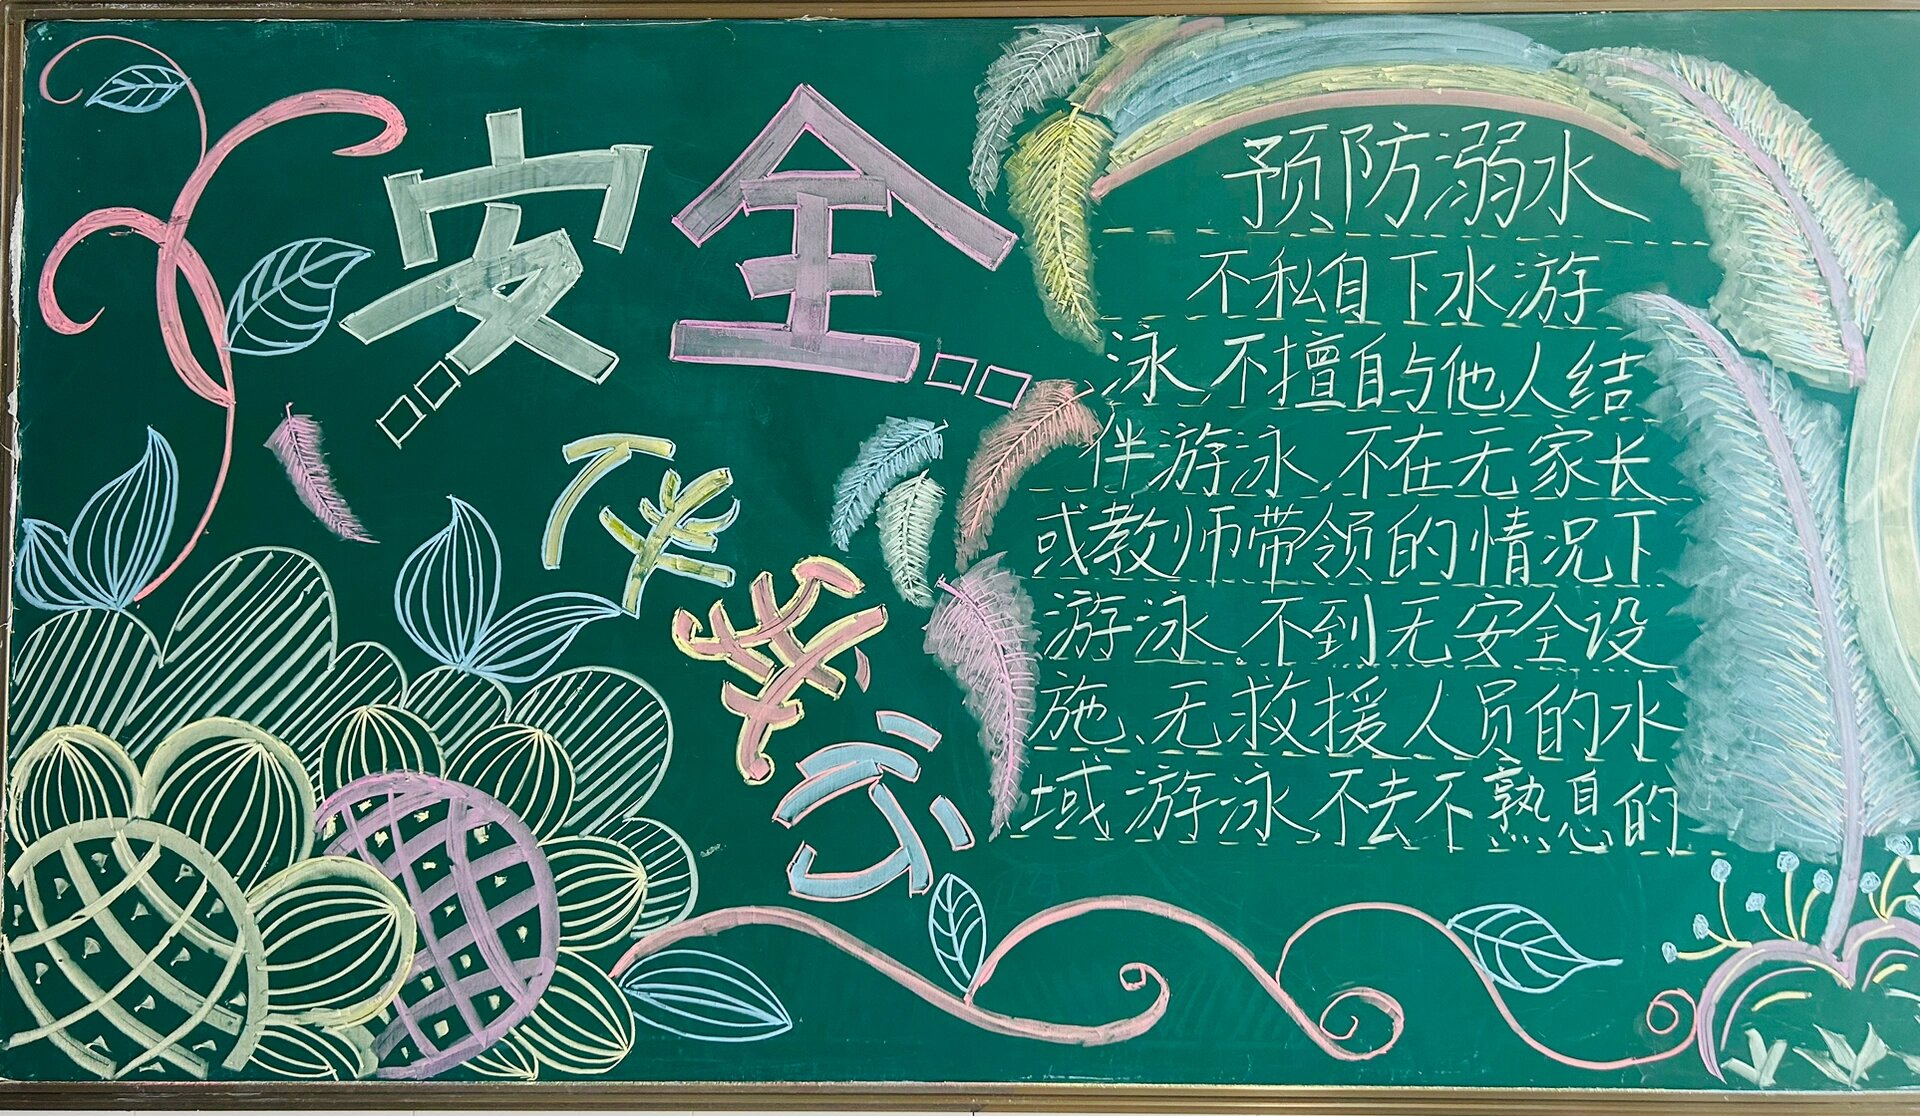 安全
伴我行
预防溺水
不私自下水游
泳 不擅自与他人结
伴游泳 不在无家长
或教师带领的情况下
游泳 不到无安全设
施、无救援人员的水
域游泳 不去不熟息的